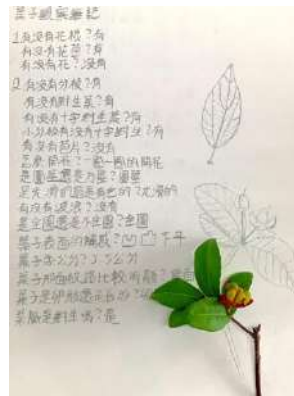 葉子觀察筆記
1.有沒有花梗?有
有沒有花萼?有
有沒有花?沒有
2.有沒有分枝?有
有沒有對生葉?有
有沒有十字對生葉?有
小分枝有沒有十字對生?有
有沒有苞片?沒有
怎麼開花?一節一節的開花
是圓莖還是方莖?圓莖
是光滑的還是有色的?光滑的
有沒有波浪?沒有
是全圓還是不全圓?全圓
葉子表面的觸感?凹凸不平
葉子多少公分?3.5公分
葉子那面紋路比較明顯?背面
葉子是卵形還是
葉脈是對生嗎?是